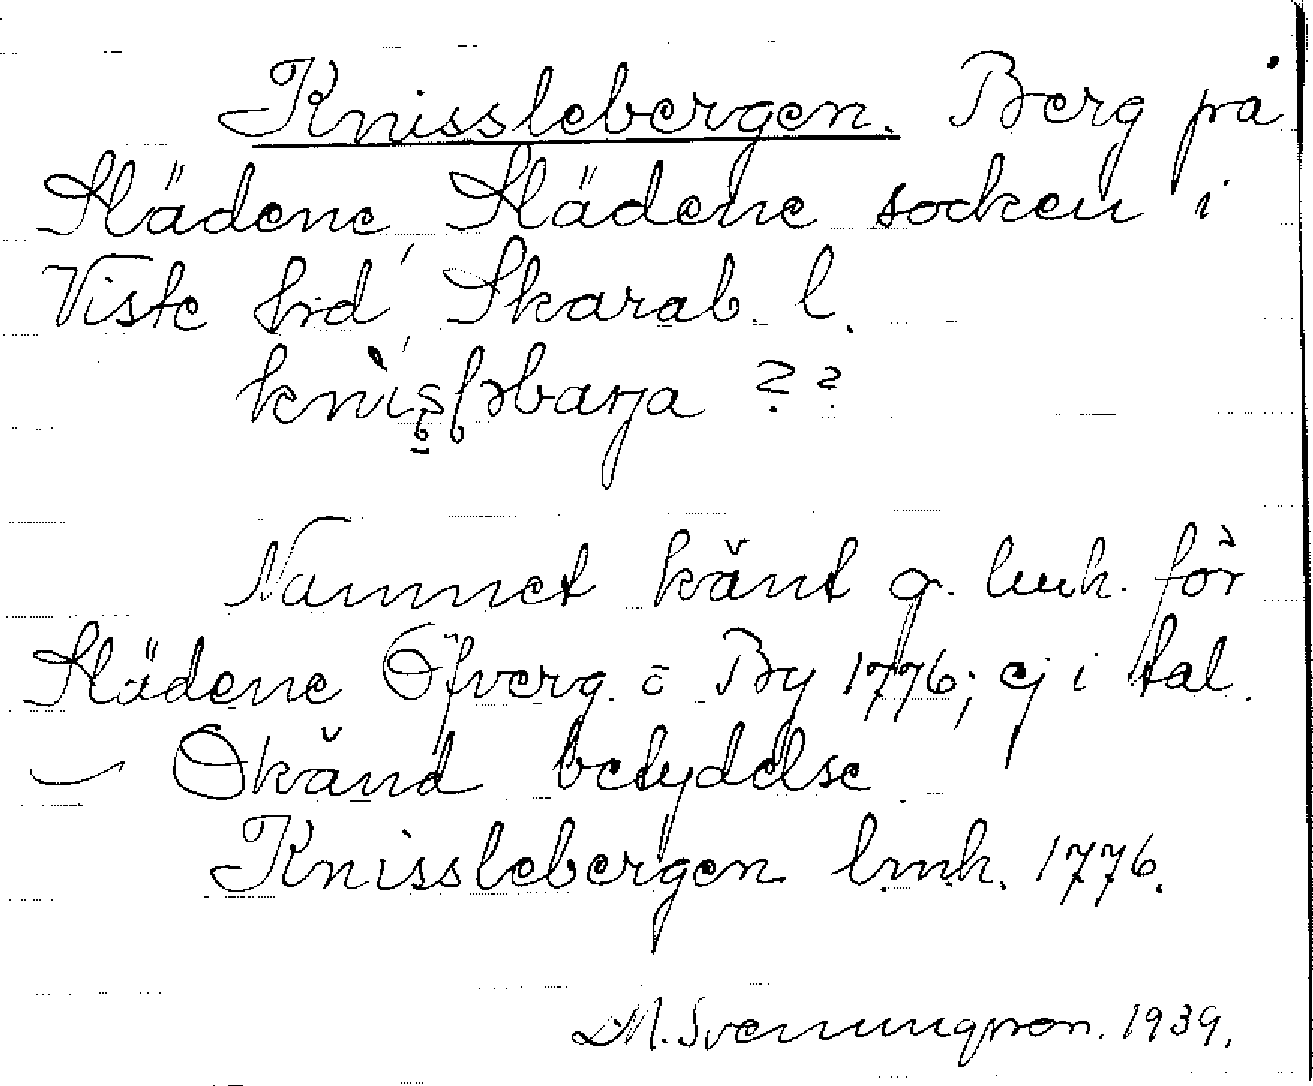 Knisslebergen. Berg på
Slädene, Slädene socken i
Viste hd, Skarab. l.
Namnet känt g. lmk. för
Slädene Öfverg. o By 1776; ej i tal.
– Okänd betydelse
Knisslebergen lmk. 1776.
D.M. Svenungsson. 1939.